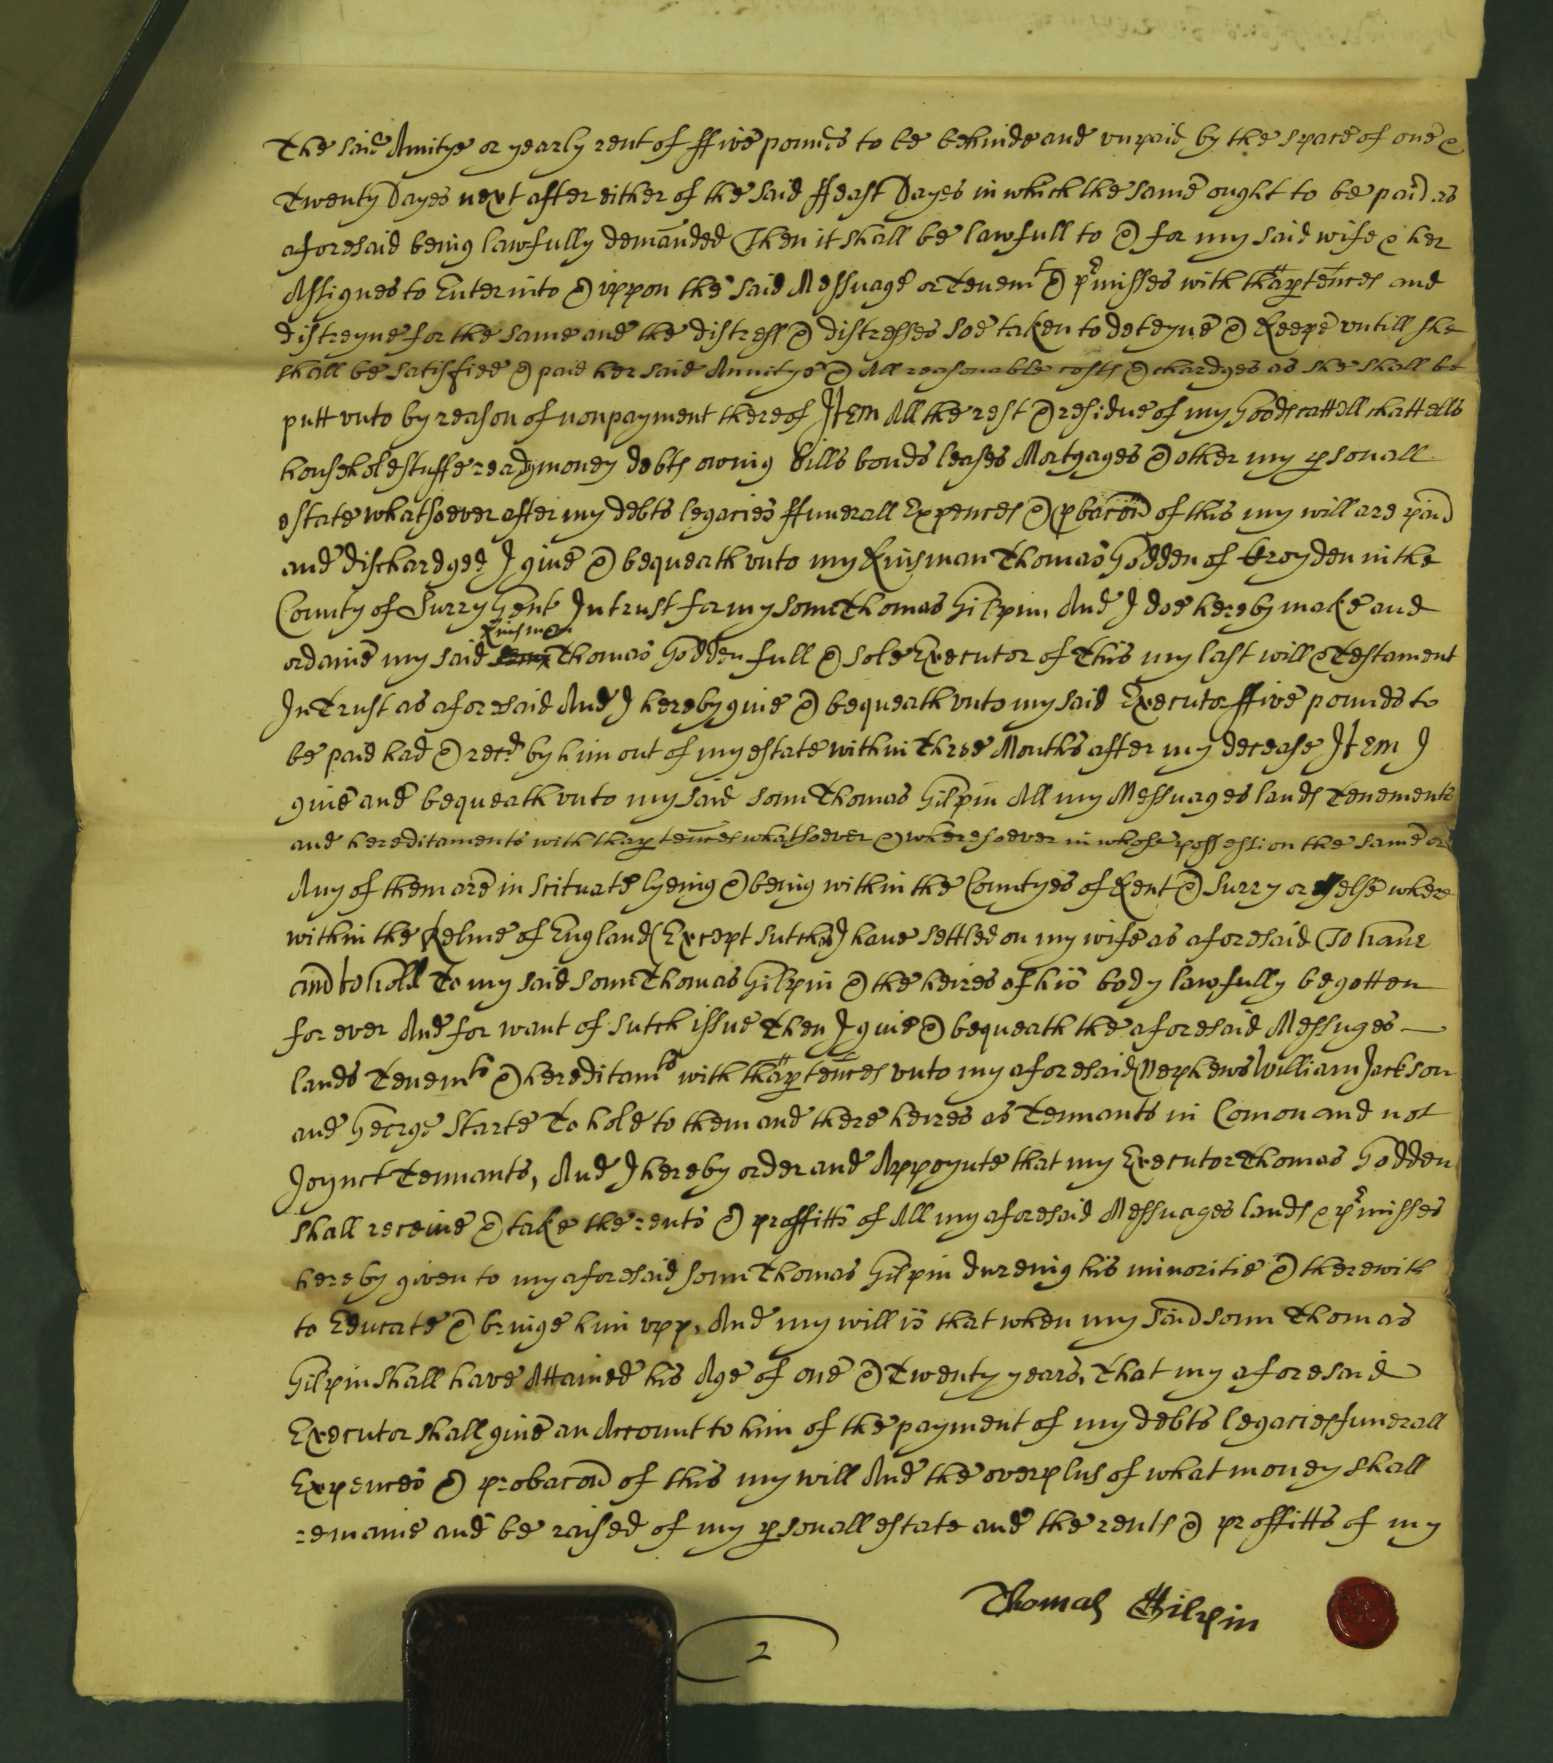 the said Anuitye or yearly rent of ffive pounds to be behinde and vnpaid by the space of one &
Twenty Dayes next after either of the said ffeast Dayes in which the same ought to be paid as
aforesaid being lawfully demanded Then it shall be lawfull to & for my said wife & her
Assignes to Enter into & vppon the said Messuage or Tenemt & pʳmisses with thap'tences and
distreyne for the same and the distress & distresses soe taken to deteyne & keepe vntill she
shall be satisfied & paid her said Anuitye & All reasonable costs & chardges as she shall be
putt vnto by reason of nonpayment thereof Item All the rest & residue of my Goods cattell chattells
household stuffe ready money debts owing bills bonds leases Mortgages & other my p'sonall
estate whatsoever after my debts legacies ffunerall Expences & p'bacon of this my will are paid
and dischardged I give & bequeath vnto my Kinsman Thomas Godden of Croyden in the
County of Surry Gent In trust for my sonn Thomas Gilpin, And I doe hereby make and
Kinsman
ordaine my said Thomas Godden full & sole Executor of This my last will & Testament
In Trust as aforesaid And I hereby give & bequeath vnto my said Executor ffive pounds to
be paid had & recd by him out of my estate within Three Months after my decease Item I
give and bequeath vnto my said sonn Thomas Gilpin All my Messuages lands Tenements
and hereditaments with thap'tences whatsoever & wheresoever in whose possession the same or
Any of them are in scituate lyeing & being within the Countyes of Kent & Surry or else where
within the Relme of England (Except sutch as I have settled on my wife as aforesaid To have
and to hold To my said sonn Thomas Gilpin & the heires of his body lawfully begotten
for ever And for want of sutch issue Then I give & bequeath the aforesaid Messuges
lands Tenemts & hereditamts with thap'tences vnto my aforesaid Nephews William Jackson
and George Starte To hold to them and there heires as Tennants in Comon and not
Joynct Tennants, And I hereby order and Appoynte that my Executor Thomas Godden
shall receive & take the rents & proffitts of All my aforesaid Messuages lands & pʳmisses
hereby given to my aforesaid sonn Thomas Gilpin dureing his minoritie & therewith
to Educate & bringe him vpp, And my will is that when my said sonn Thomas
Gilpin shall have Attained his Age of one & Twenty years, that my aforesaid
Executor shall give an Account to him of the payment of my debts legacies funerall
Expences & probacon of this my will And the overplus of what money shall
remaine and be raised of my p'sonall estate and the rents & proffitts of my
Thomas Gilpin
2